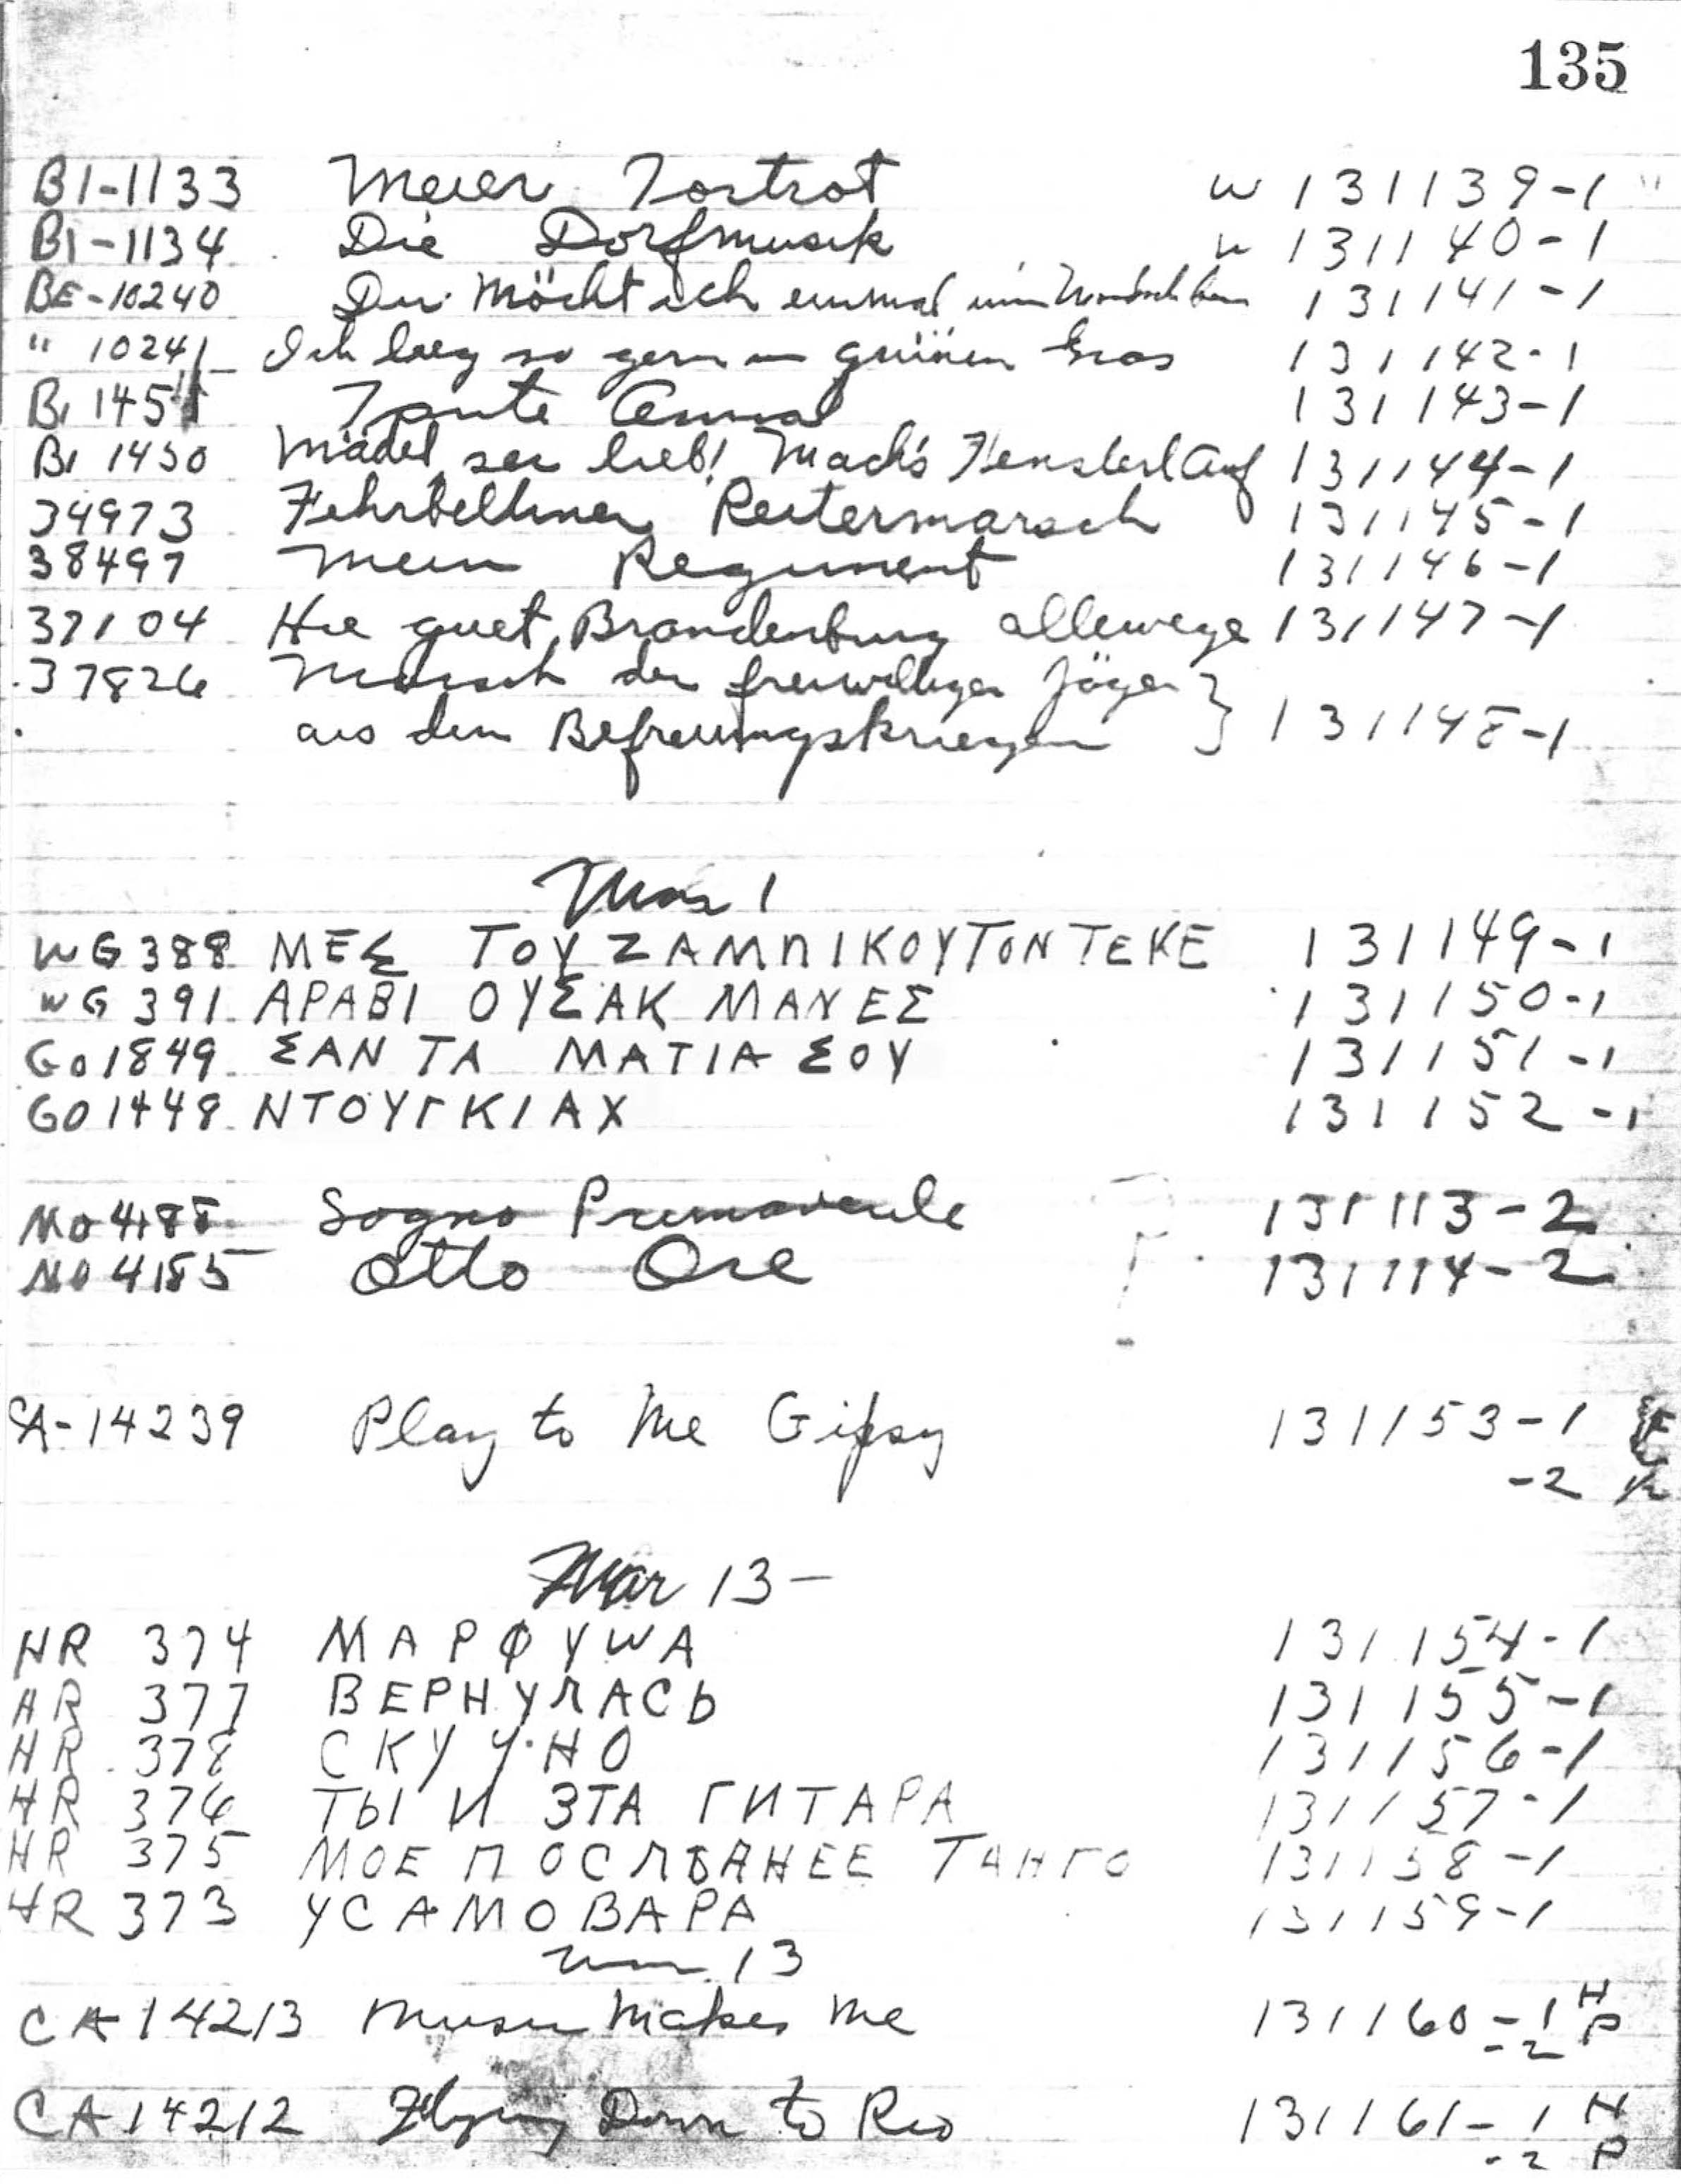 135
BI-1133 Meier Foxtrot W 131139-1 "
BI-1134 Die Dorfmusik W 131140-1
BE-10240 Du Möcht ich einmal 131141-1
" 10241 Ich lieg so gern im grünen Gras 131142-1
BI 1451 Tante Anna 131143-1
BI 1450 Mädel, sei lieb! Mach's Fensterl Auf 131144-1
34973 Fehrbelliner Reitermarsch 131145-1
38497 Mein Regiment 131146-1
37104 Hie guet Brandenburg allewege 131147-1
37826 Marsch der freiwilligen Jäger }
aus den Befreiungskriegen } 131148-1
Mar 1
WG 388 ΜΕΣ ΤΟΥ ΖΑΜΠΙΚΟΥ ΤΟΝ ΤΕΚΕ 131149-1
WG 391 ΑΡΑΒΙ ΟΥΣΑΚ ΜΑΝΕΣ 131150-1
GO 1849 ΣΑΝ ΤΑ ΜΑΤΙΑ ΣΟΥ 131151-1
GO 1448 ΝΤΟΥΓΚΙΑΧ 131152-1
MO 4188 Sogno Primaverile 131113-2
MO 4185 Otto Ore 131114-2
CA-14239 Play to Me Gipsy 131153-1
-2
Mar 13-
HR 374 МАРФУША 131154-1
HR 377 ВЕРНУЛАСЬ 131155-1
HR 378 СКУЧНО 131156-1
HR 376 ТЫ И ЭТА ГИТАРА 131157-1
HR 375 МОЕ ПОСЛѢДНЕЕ ТАНГО 131158-1
HR 373 У САМОВАРА 131159-1
Mar 13
CA 14213 Music Makes Me 131160-1 H
-2 P
CA 14212 Flying Down to Rio 131161-1 H
-2 P